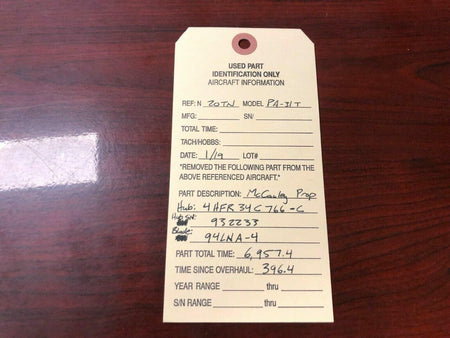 USED PART
IDENTIFICATION ONLY
AIRCRAFT INFORMATION
REF: N 20TN MODEL PA-31T
MFG: SN/
TOTAL TIME:
TACH/HOBBS:
DATE: 1/19 LOT#
"REMOVED THE FOLLOWING PART FROM THE
ABOVE REFERENCED AIRCRAFT."
PART DESCRIPTION: McCauley Prop
Hub: 4HFR34C766-C
Hub SN: 932233
Blade: 94LNA-4
PART TOTAL TIME: 6,957.4
TIME SINCE OVERHAUL: 396.4
YEAR RANGE thru
S/N RANGE thru